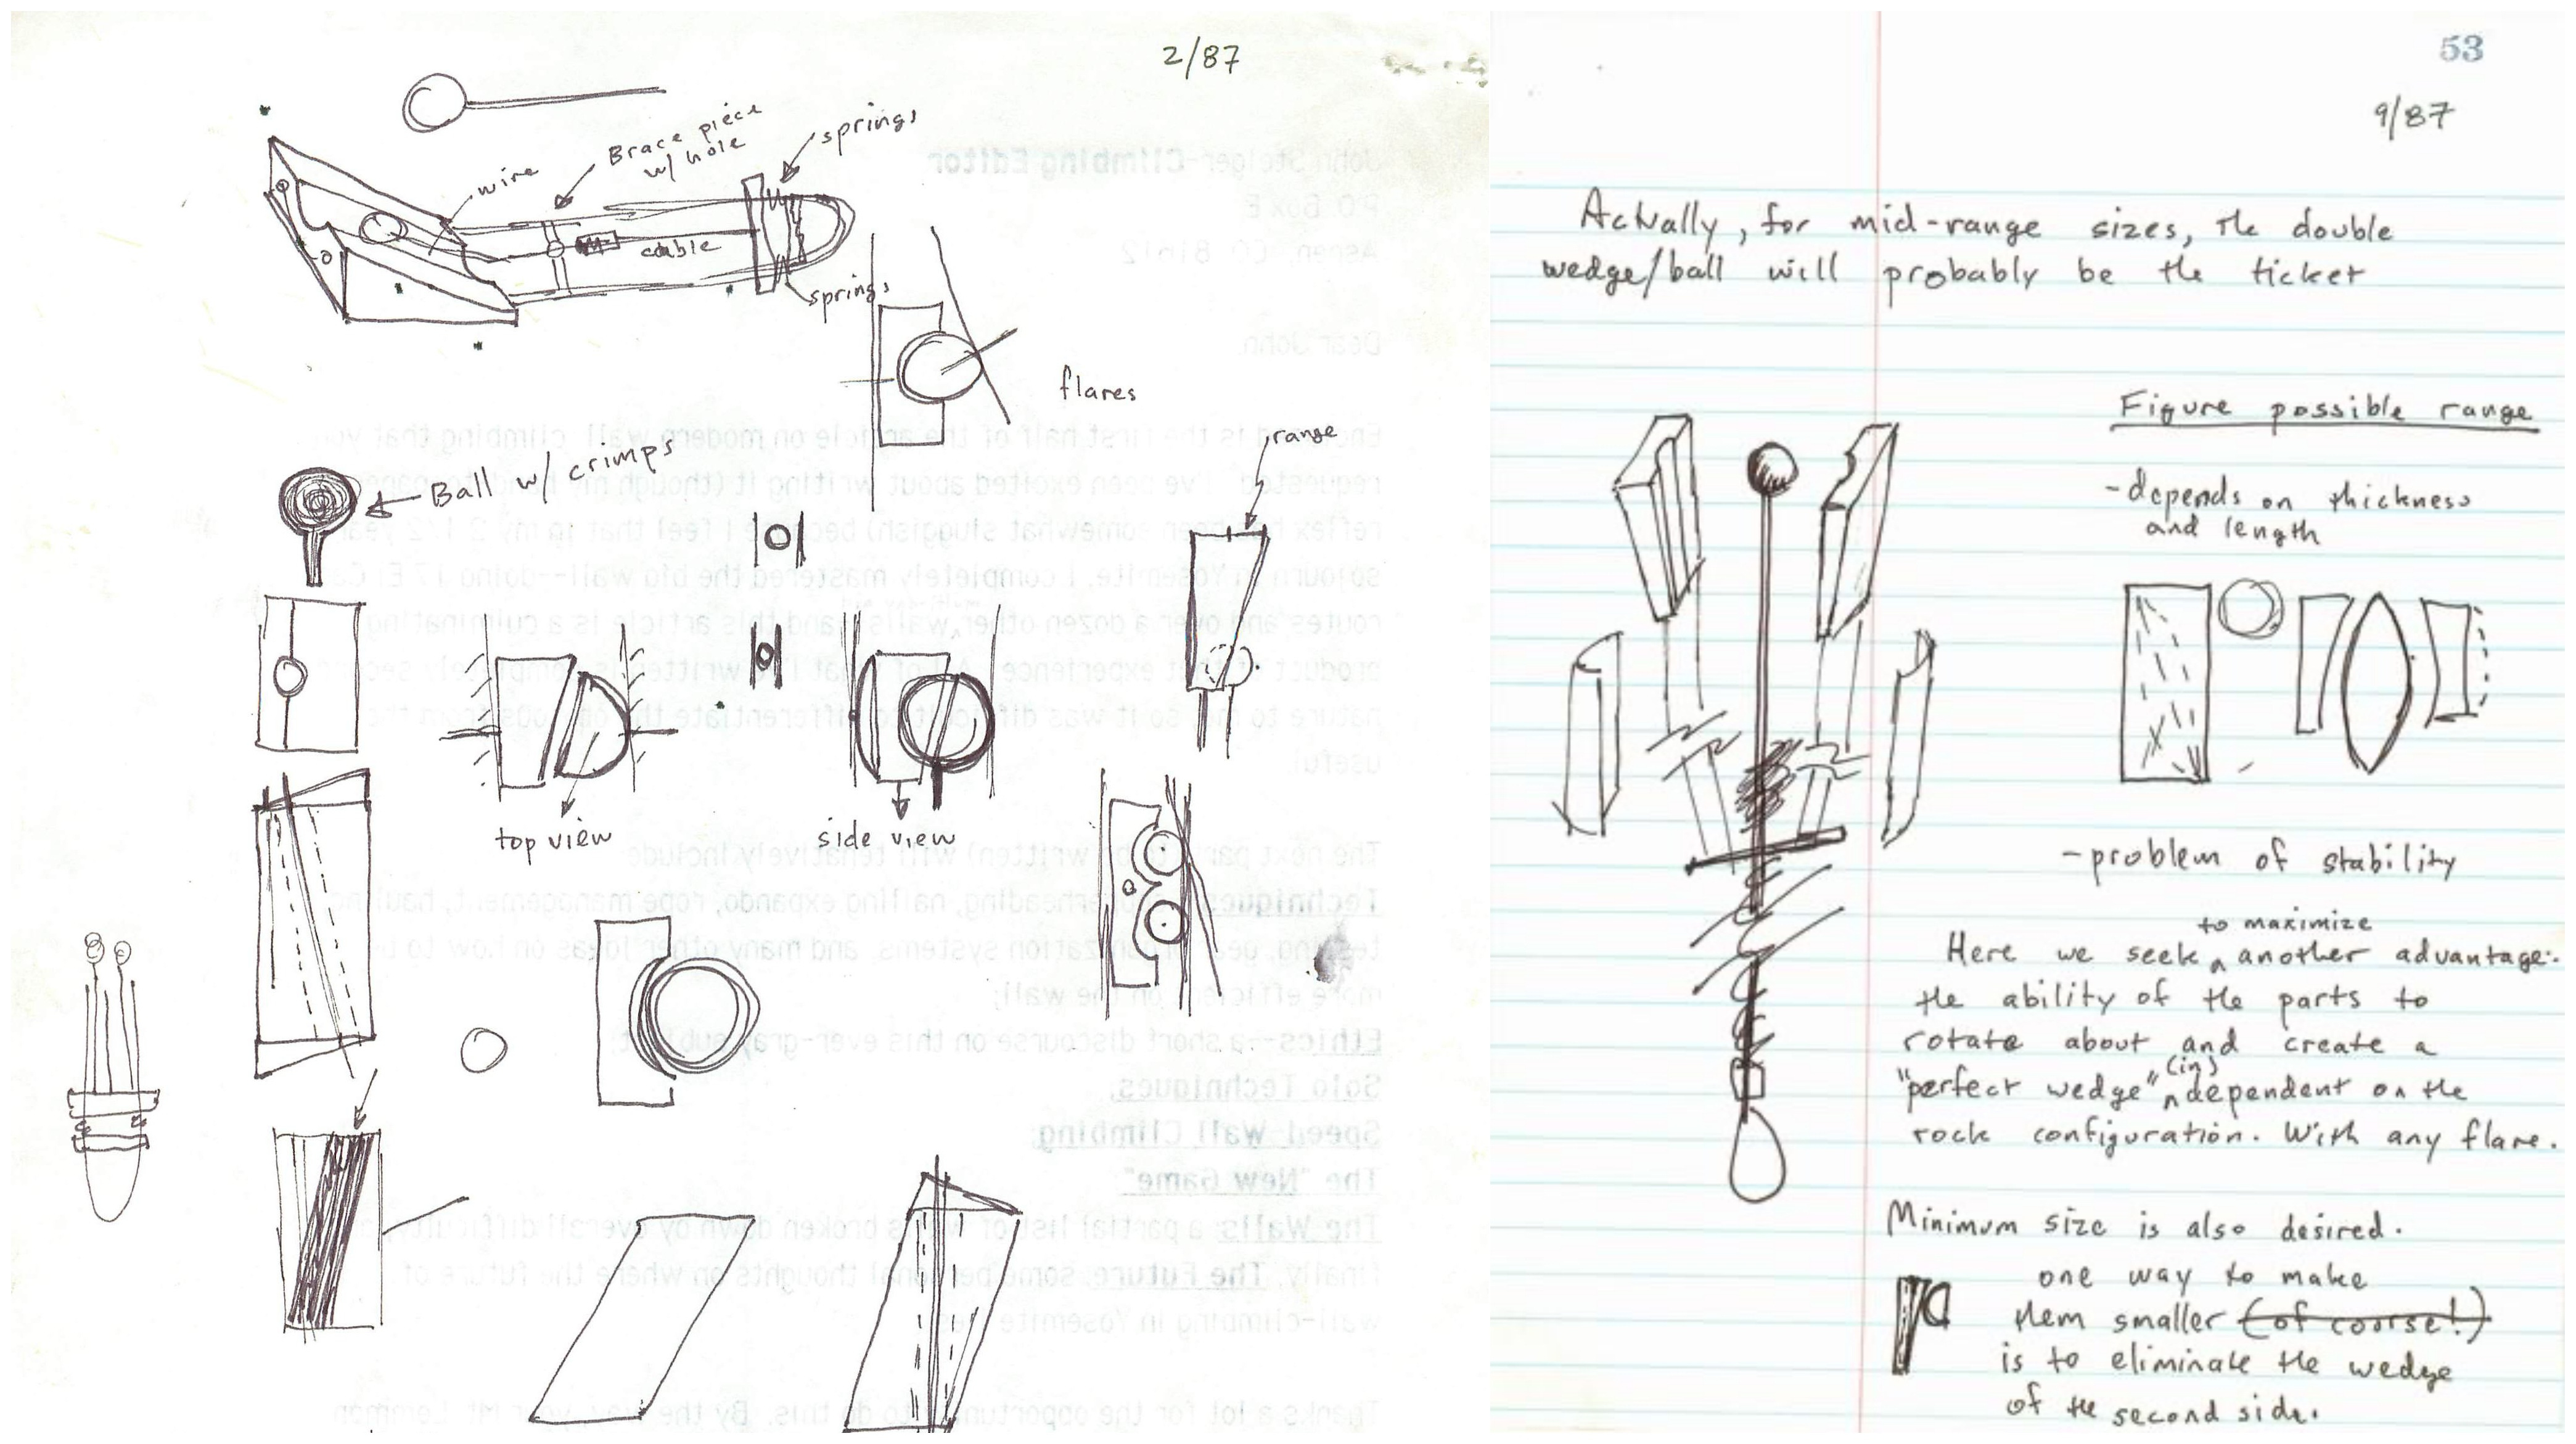 2/87
springs
Brace piece
w/ hole
wire
cable
springs
flares
range
Ball w/ crimps
top view
side view
John Steiger-Climbing Editor
P.O. Box E
Aspen, CO 81612
Dear John,
is the first half of the article on modern wall climbing that
requested. I've been excited about writing it (though my
reflex has been somewhat sluggish) because I feel that in my 2 1/2 year
sojourn in Yosemite, I completely mastered the big wall--doing 17 El
routes and over a dozen other walls--and this article is a culminating
product of that experience.
nature to me, so it was difficult to differentiate the from the
useful.
The next part (to be written) will tentatively include:
Techniques nailing expando, rope management, hauling
systems, and many other ideas on how to
more efficient on the wall;
Ethics--a short discourse on this ever-gray subject;
Solo Techniques;
Speed Wall Climbing;
The "New Game"
The Walls: a partial list of walls broken down by overall difficulty
finally, The Future: some personal thoughts on where the future of
wall-climbing in Yosemite lies.
Thanks a lot for the opportunity to do this. By the way, your Mt. Lemmon
53
9/87
Actually, for mid-range sizes, the double
wedge/ball will probably be the ticket
Figure possible range
- depends on thickness
and length
- problem of stability
to maximize
Here we seek ^ another advantage:
the ability of the parts to
rotate about and create a
"perfect wedge" ^ (in) dependent on the
rock configuration. With any flare.
Minimum size is also desired.
one way to make
them smaller (of course!)
is to eliminate the wedge
of the second side.